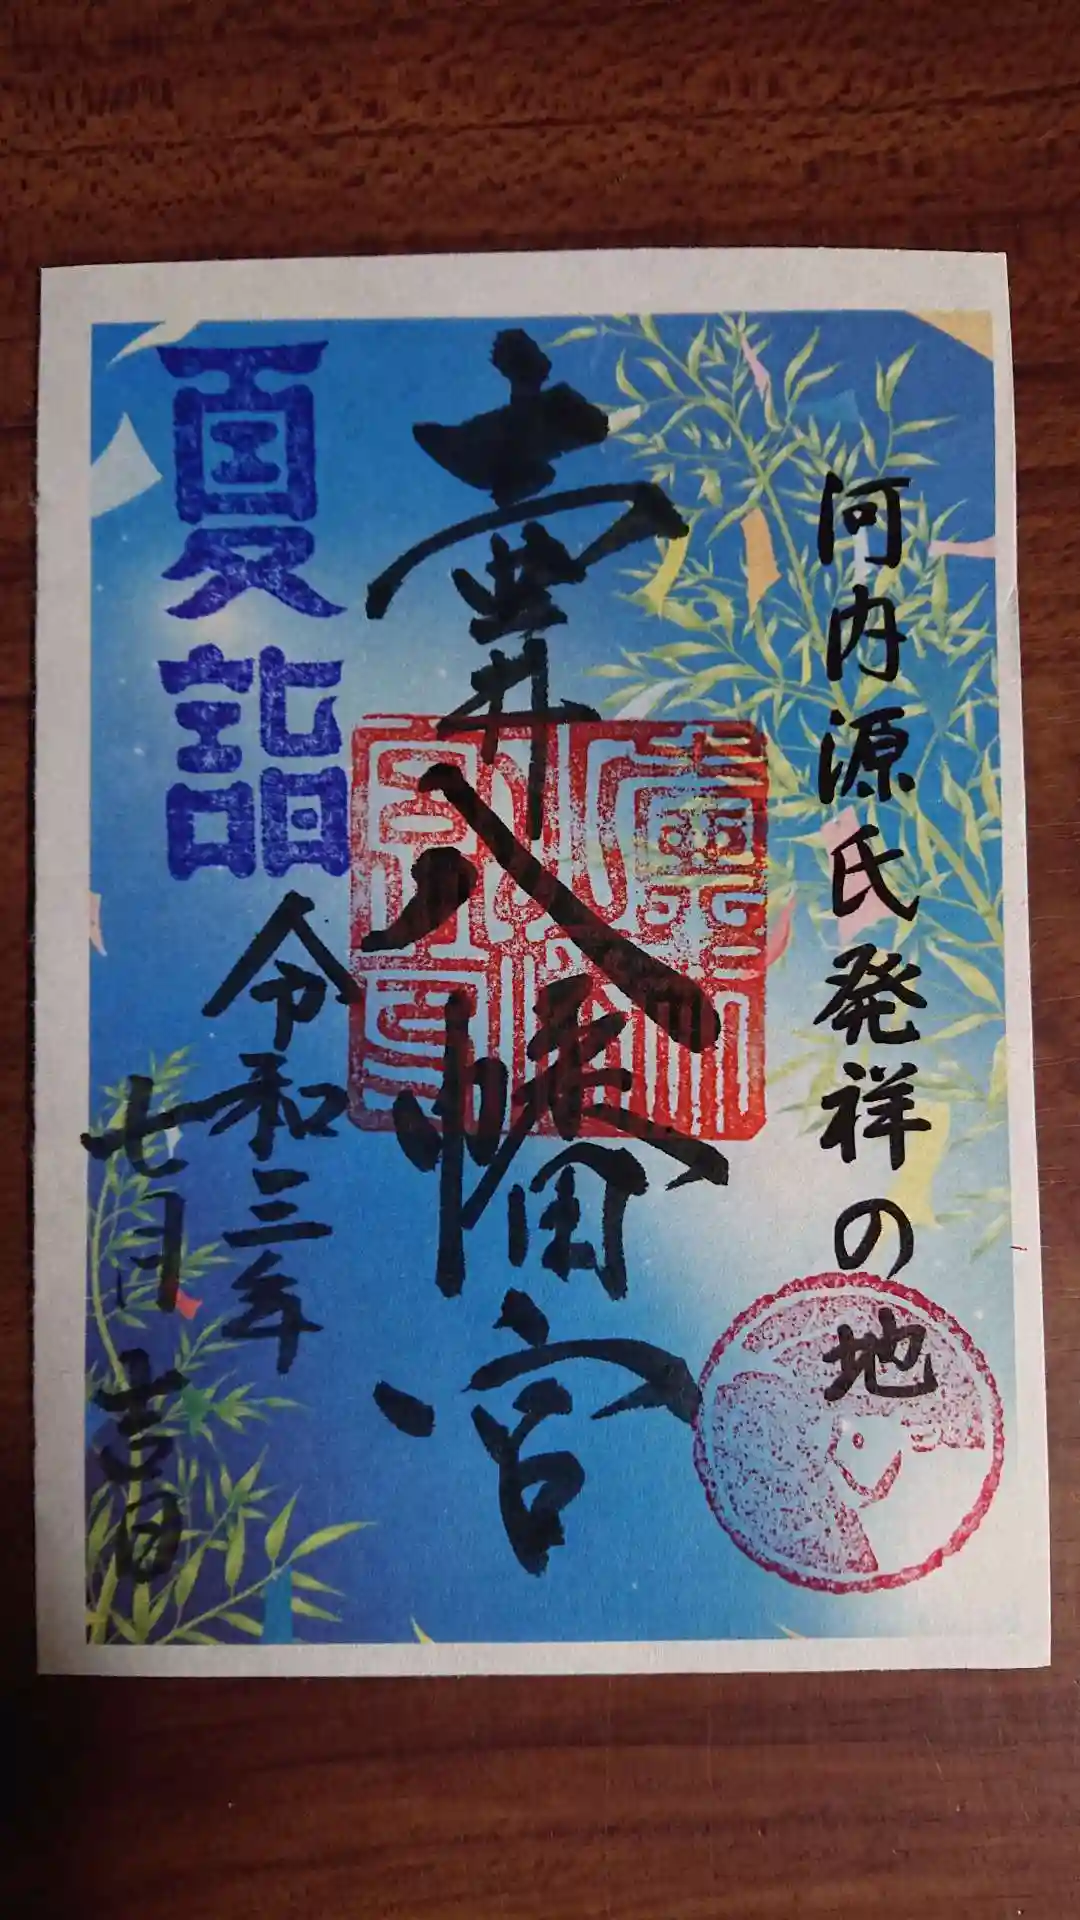 河内源氏発祥の地
壷井八幡宮
夏詣
令和三年
七月吉日